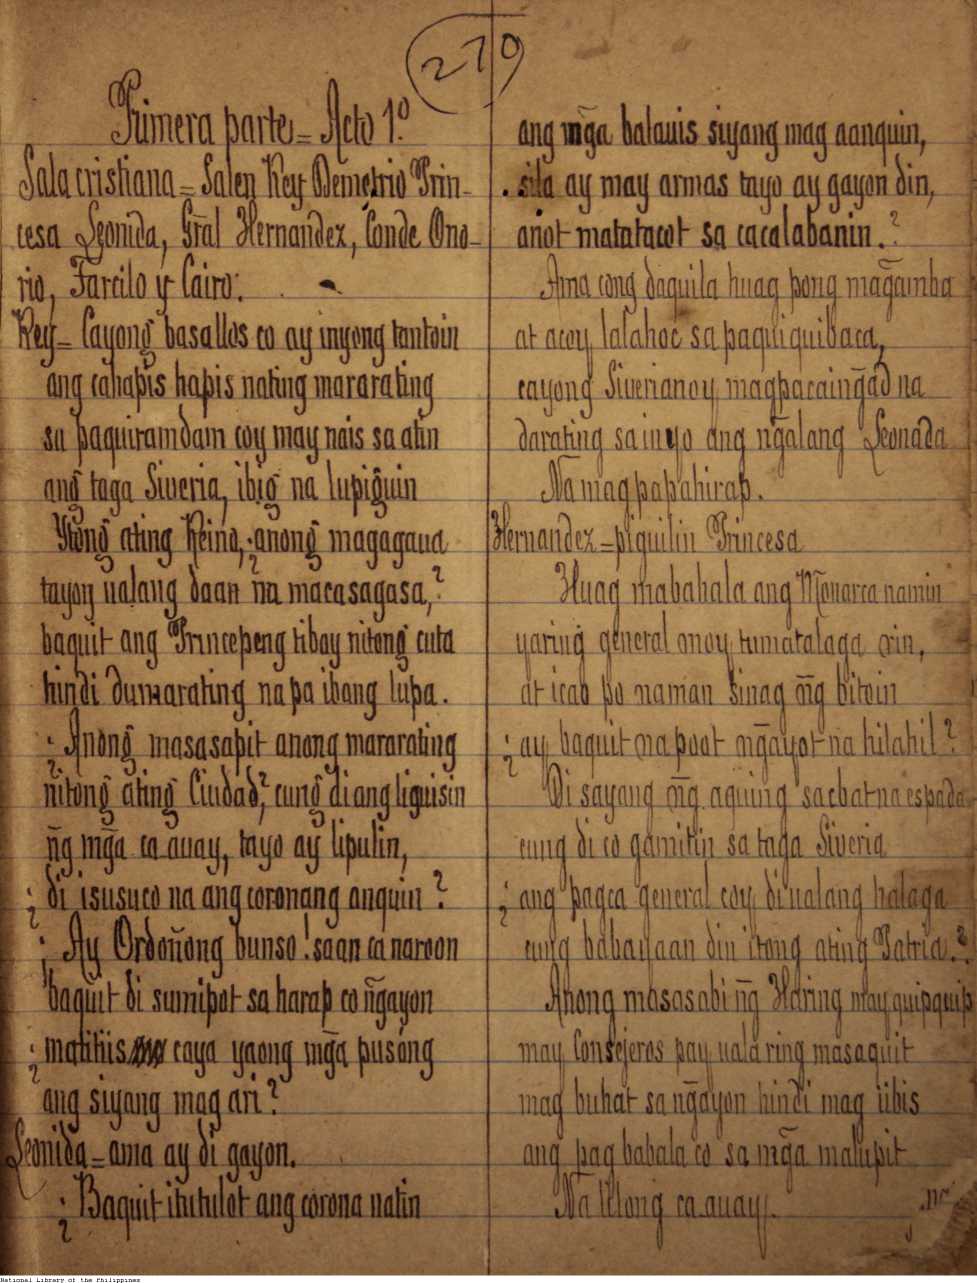 219
Primera parte = Acto 1.º
Sala cristiana = Salen Rey Demetrio Prin-
cesa Leonida, Gral Hernandez, Conde Ono-
rio, Tarcilo y Cairo:
Rey = Cayong basallos co ay inyong tantoin
ang cahapis hapis nating mararating
sa paquiramdam coy may nais sa atin
ang̃ taga Siveria, ibig̃ na lupiguin
Ytong̃ ating Reino, ¿anong̃ magagaua
tayoy ualang daan na macasagasa,?
baquit ang Princepeng tibay nitong̃ cuta
hindi dumarating na pa ibang lupa.
¿Anong̃ masasapit anong mararating
nitong̃ ating̃ Ciudad,? cung̃ di ang liguisin
ñg mg̃a ca auay, tayo ay lipulin,
¿di isusuco na ang coronang anquin?
¡Ay Ordoñong bunso! saan ca naroon
baquit di sumipot sa harap co n̄gayon
¿matitiis caya yaong mg̃a pusong
ang siyang mag ari?
Leonida = ama ay di gayon.
¿Baquit itutulot ang corona natin
ang mg̃a balauis siyang mag aanquin,
sila ay may armas tayo ay gayon din,
anot matatacot sa cacalabanin.?
Ama cong daquila huag pong mag̃amba
at acoy lalahoc sa paquiquibaca,
cayong Siverianoy magpacaing̃ad na
darating sa inyo ang ng̃alang Leonada
Na magpapahirap.
Hernandez = piguilin Princesa
Huag mababala ang Monarca namin
yaring general moy tumatalaga rin,
at icao po naman sinag m̃g bitoin
¿ay baquit na poot ng̃ayot na hilahil?
Di sayang m̃g aquing sacbat na espada
cung di co gamitin sa taga Siveria
¿ang pagca general coy di ualang halaga
cung babayaan din itong ating Patria.?
Anong masasabi n̄g Haring may quipquip
may Consejeros pay uala ring masaquit
mag buhat sa ng̃ayon hindi mag iibis
ang pag babala co sa mg̃a malupit
Na lilong ca auay.